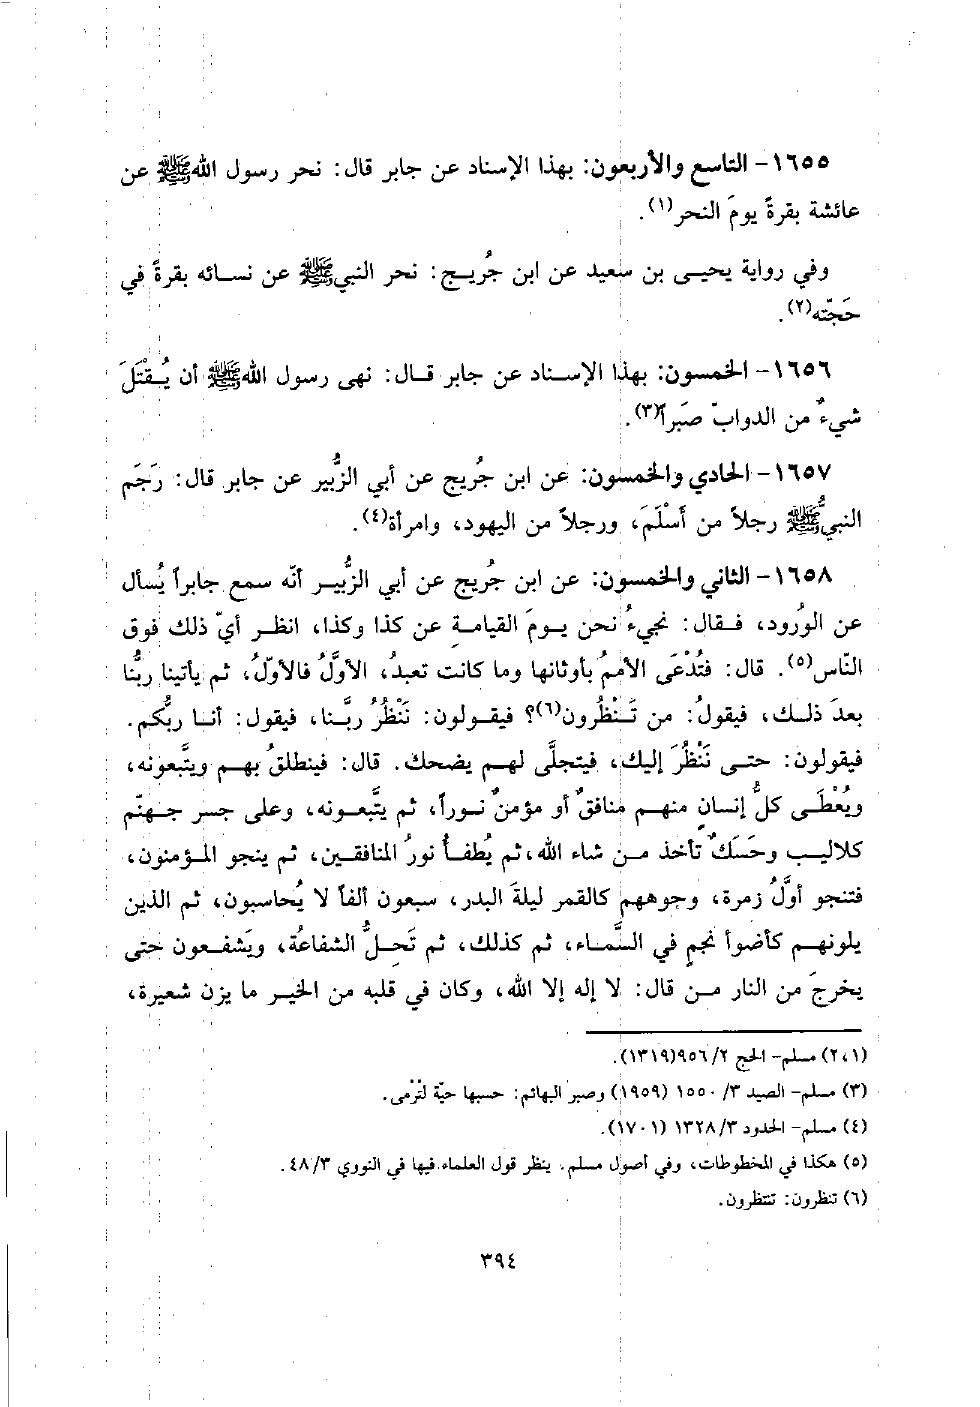 ١٦٥٥- التاسع والأربعون: بهذا الإسناد عن جابر قال: نحر رسول اللهﷺ عن
عائشة بقرةً يومَ النحر(١).
وفي رواية يحيى بن سعيد عن ابن جُريج: نحر النبيﷺ عن نسائه بقرةً في
حَجّته(٢).
١٦٥٦- الخمسون: بهذا الإسناد عن جابر قال: نهى رسول اللهﷺ أن يُقْتَلَ
شيءٌ من الدوابّ صَبراً(٣).
١٦٥٧- الحادي والخمسون: عن ابن جُريج عن أبي الزُّبير عن جابر قال: رَجَم
النبيُّﷺ رجلاً من أَسْلَمَ، ورجلاً من اليهود، وامرأة(٤).
١٦٥٨- الثاني والخمسون: عن ابن جُريج عن أبي الزُّبير أنّه سمع جابراً يُسأل
عن الوُرود، فقال: نجيءُ نحن يومَ القيامة عن كذا وكذا، انظر أيّ ذلك فوق
النّاس(٥). قال: فتُدْعَى الأممُ بأوثانها وما كانت تعبدُ، الأوَّلُ فالأوّلُ، ثم يأتينا ربُّنا
بعدَ ذلك، فيقولُ: من تَنْظُرون(٦)؟ فيقولون: نَنْظُرُ ربَّنا، فيقول: أنا ربُّكم.
فيقولون: حتى نَنْظُرَ إليك، فيتجلَّى لهم يضحك. قال: فينطلقُ بهم ويتَّبعونه،
ويُعْطَى كلُّ إنسانٍ منهم منافقٌ أو مؤمنٌ نوراً، ثم يتَّبعونه، وعلى جسر جهنّم
كلاليب وحَسَكٌ تأخذ من شاء الله، ثم يُطفأُ نورُ المنافقين، ثم ينجو المؤمنون،
فتنجو أوَّلُ زمرة، وجوههم كالقمر ليلةَ البدر، سبعون ألفاً لا يُحاسبون، ثم الذين
يلونهم كأضوأ نجمٍ في السَّماء، ثم كذلك، ثم تَحِلُّ الشفاعةُ، ويَشفعون حتى
يخرجَ من النار من قال: لا إله إلا الله، وكان في قلبه من الخير ما يزن شعيرة،
(٢،١) مسلم- الحج ٢/ ٩٥٦(١٣١٩).
(٣) مسلم- الصيد ٣/ ١٥٥٠ (١٩٥٩) وصبر البهائم: حسبها حيّة لتُرْمى.
(٤) مسلم- الحدود ٣/ ١٣٢٨ (١٧٠١).
(٥) هكذا في المخطوطات، وفي أصول مسلم. ينظر قول العلماء فيها في النووي ٤٨/٣.
(٦) تنظرون: تنتظرون.
٣٩٤